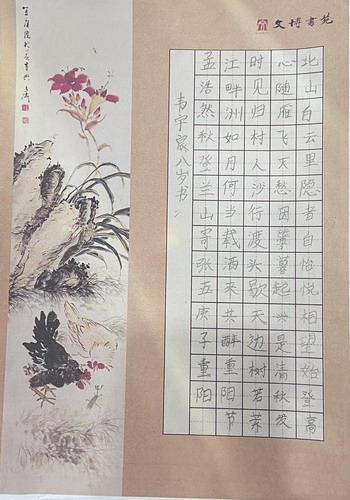 文博书苑
北山白云里隐者自怡悦相望始登高
心随雁飞灭愁因薄暮起兴是清秋发
时见归村人沙行渡头歇天边树若荠
江畔洲如月何当载酒来共醉重阳节
孟浩然秋登兰山寄张五庚子重阳
韦宇宸八岁书